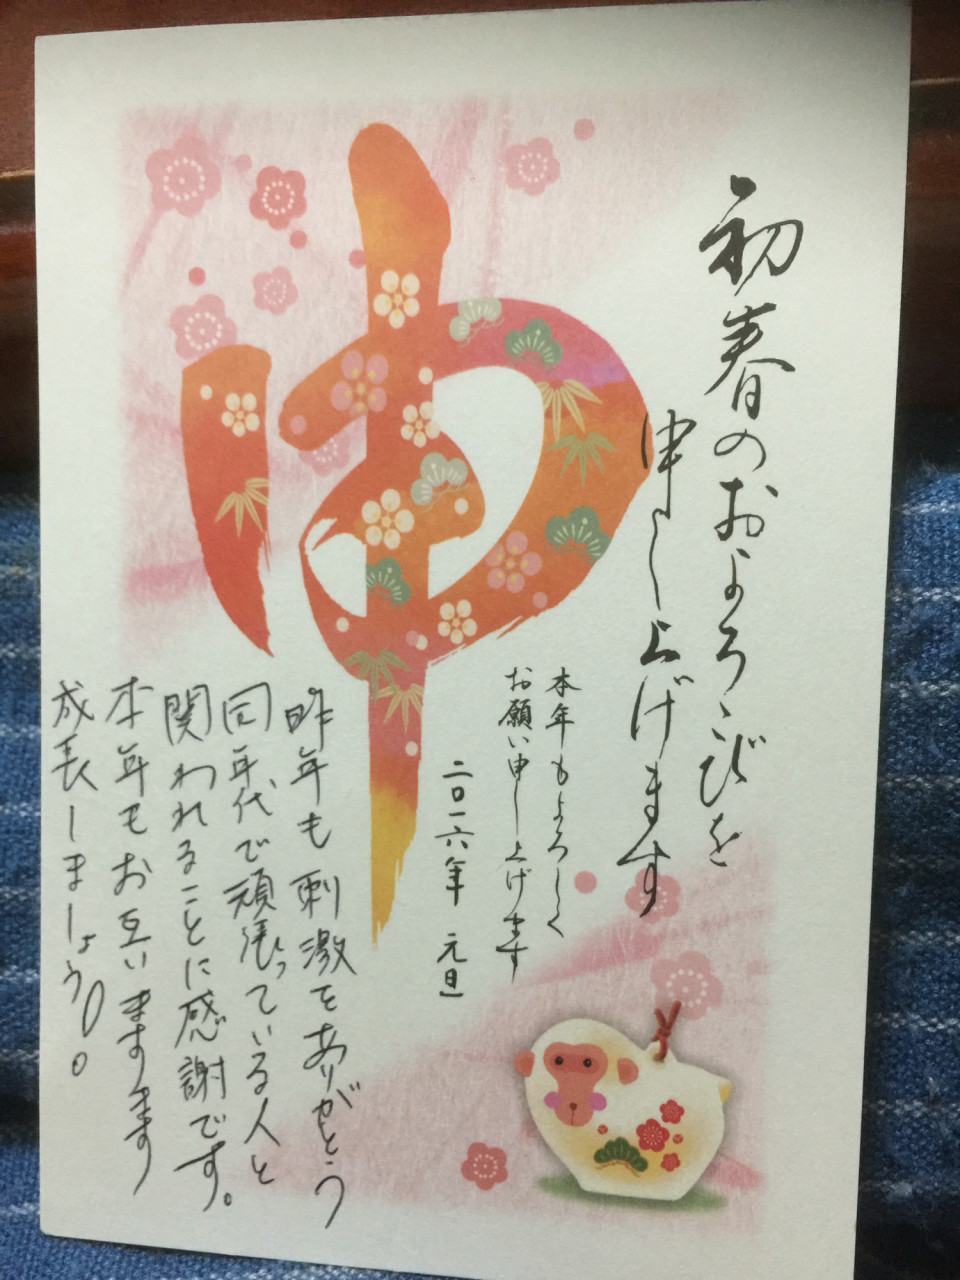 初春のおよろこびを
申し上げます
本年もよろしく
お願い申し上げます
二〇一六年 元旦
申
昨年も刺激をありがとう
同年代で頑張っている人と
関われることに感謝です。
本年もお互いますます
成長しましょう!。